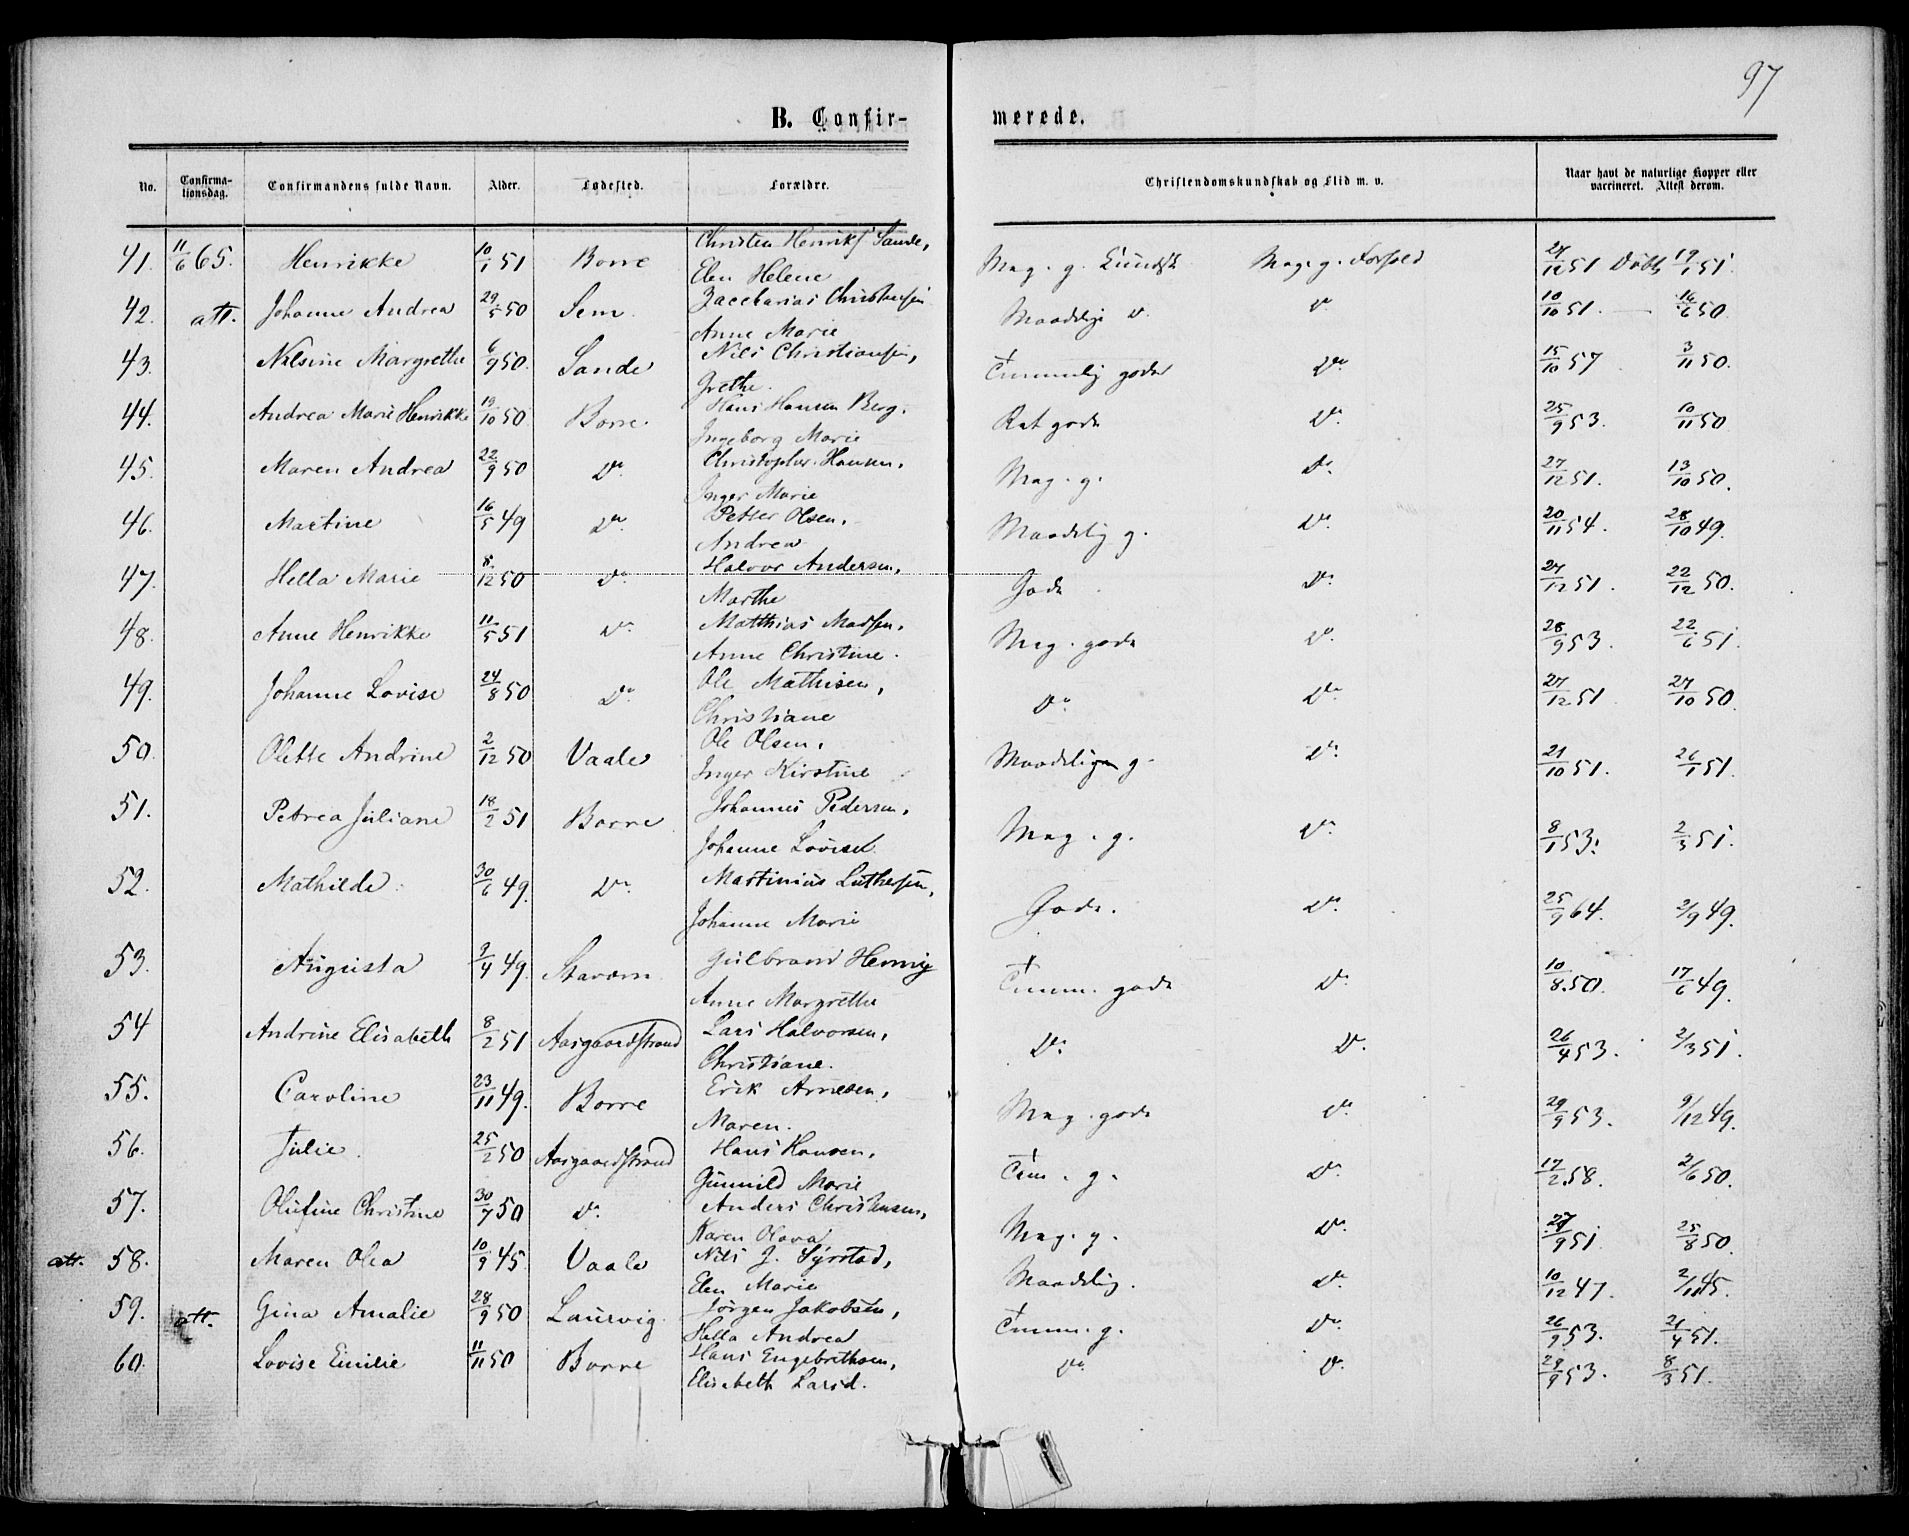 97
B. Confir- merede.
No. Confirma-tionsdag. Confirmandens fulde Navn. Alder. Fødested. Forældre. Christendomskundskab og Flid m. v. Naar havt de naturlige Kopper eller vaccineret. Attest derom.
41. 11/6 65. Henrikke 10/1 51 Borre Christen Henriks Sande, Elen Helene Meg. g. Kundsk Meg. g. Forhold 27/12 51 Døbt 19/1 51.
42. att. Johanne Andrea 29/5 50 Sem. Zaccharias Christensen Anne Marie Maadelig d. do 10/10 51. 16/6 50.
43. Nilsine Margrethe 6/9 50. Sande Nils Christiansen, Grethe. Temmelig gode Do. 15/10 57 3/11 50.
44. Andrea Marie Henrikke 19/10 50 Borre. Hans Hansen Berg. Ingeborg Marie Ret gode Do. 25/9 53. 10/11 50
45. Maren Andrea 22/9 50 Do. Christopher Hansen, Inger Marie Meg. g. Do. 27/12 51. 13/10 50.
46. Martine 16/5 49 Do Petter Olsen, Andrea Maadelig g. Do. 20/11 54. 28/10 49.
47. Hella Marie 8/12 50 Do Halvor Andersen, Marthe Gode Do. 27/12 51. 22/12 50.
48. Anne Henrikke 11/5 51 Do Matthias Madsen. Anne Christine. Meg. gode Do. 28/9 53. 22/6 51.
49. Johanne Lovise 24/8 50 Do. Ole Mathisen, Christiane Do. Do. 27/12 51 27/10 50.
50. Olette Andrine 2/12 50 Vaale Ole Olsen, Inger Kirstine Maadelig g. Do. 21/10 51. 26/1 51.
51. Petrea Juliane 18/2 51 Borre Johannes Pedersen, Johanne Lovise. Meg. g. Do. 8/1 53. 2/3 51.
52. Mathilde. 30/6 49. Do. Martinius Luthersen, Johanne Marie Gode. Do. 25/9 64. 2/9 49.
53. Augusta 9/4 49. Stavern Gulbrand Hennig Anne Margrethe Temm. gode Do. 10/8 50. 17/6 49.
54 Andrine Elisabeth 8/2 51 Aasgaardstrand Lars Halvorsen, Christiane. Do. Do. 26/4 53. 2/3 51.
55. Caroline 23/11 49. Borre Erik Arnesen, Maren. Meg. gode do 29/9 53. 9/12 49.
56. Julie. 25/2 50 Aasgaardstrand Hans Hansen, Gunnild Marie Tem. g. Do. 17/2 58. 2/6 50.
57. Olufine Christine 30/7 50 Do. Anders Christensen, Karen Olava Meg. g. Do. 27/9 51 25/8 50.
att. 58. Maren Olea 10/9 45 Vaale Nils J. Syrstad, Elen Marie Maadelig. Do. 10/12 47. 2/11 45.
59. att. Gina Amalie 28/9 50 Laurvig Jørgen Jakobsen, Hella Andrea Temm. g. Do. 26/9 53. 21/4 51.
60. Lovise Emilie 11/11 50 Borre Hans Engebrethsen, Elisabeth Larsd. Do. Do. 29/9 53. 8/3 51.